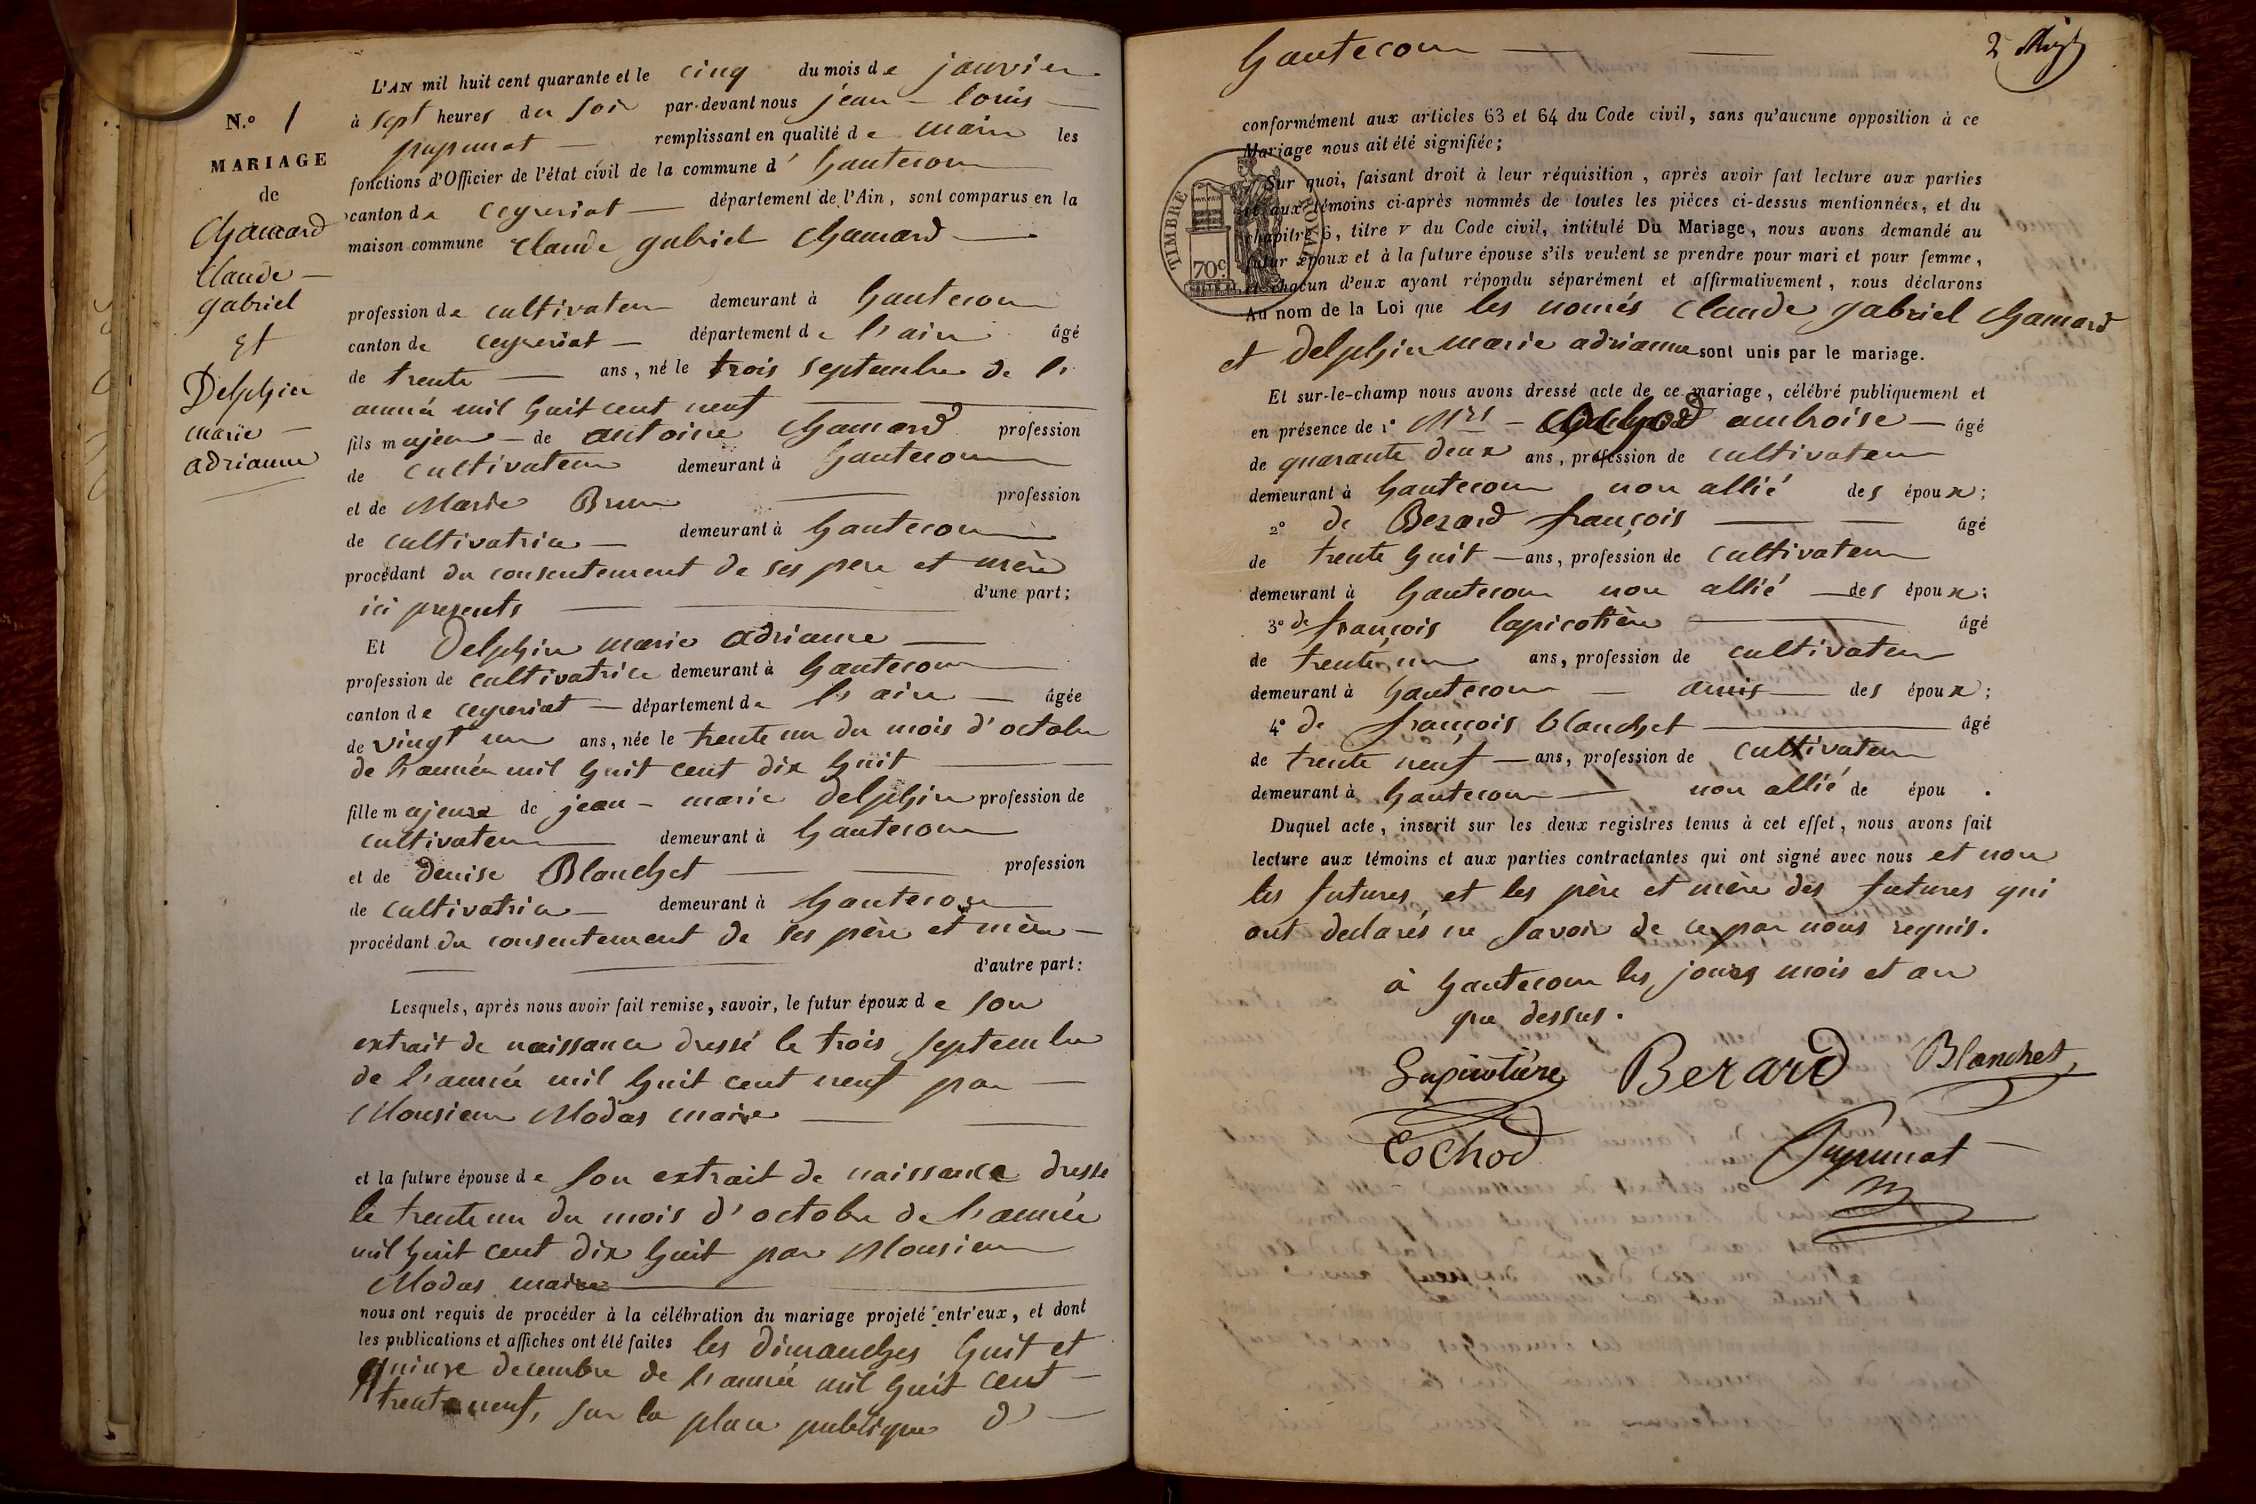 N.º 1
MARIAGE
de
Chamard
Claude
gabriel
Et
Delphin
marie
adrianne
L'AN mil huit cent quarante et le cinq du mois de janvier
à sept heures du soir par-devant nous jean-louis
remplissant en qualité de maire les
fonctions d'Officier de l'état civil de la commune d' hautecour
canton de Ceyzeriat département de l'Ain, sont comparus en la
maison commune Claude gabriel Chamard
profession de cultivateur demeurant à hautecour
canton de ceyzeriat département de l'ain âgé
de trente ans, né le trois septembre de l'
année mil huit cent neuf
fils majeur de antoine Chamard profession
de cultivateur demeurant à hautecour
et de Marie Brun profession
de cultivatrice demeurant à hautecour
procédant du consentement de ses pere et mère
ici presents d'une part;
Et Delphin marie adrianne
profession de cultivatrice demeurant à hautecour
canton de ceyzeriat département de l'ain âgée
de vingt un ans, née le trente un du mois d'octobre
de l'année mil huit cent dix huit
fille majeure de jean-marie Delphin profession de
cultivateur demeurant à hautecour
et de denise Blanchet profession
de cultivatrice demeurant à hautecour
procédant du consentement de ses père et mère
d'autre part:
Lesquels, après nous avoir fait remise, savoir, le futur époux de son
extrait de naissance dressé le trois septembre
de l'année mil huit cent neuf par
Monsieur Modas maire
et la future épouse de son extrait de naissance dressé
le trente un du mois d'octobre de l'année
mil huit cent dix huit par Monsieur
Modas maire
nous ont requis de procéder à la célébration du mariage projeté entr'eux, et dont
les publications et affiches ont été faites les dimanches huit et
quinze decembre de l'année mil huit cent
trente neuf, sur la place publique d'
hautecour
2
conformément aux articles 63 et 64 du Code civil, sans qu'aucune opposition à ce
Mariage nous ait été signifiée;
TIMBRE ROYAL
70c
Sur quoi, faisant droit à leur réquisition, après avoir fait lecture aux parties
et aux témoins ci-après nommés de toutes les pièces ci-dessus mentionnées, et du
chapitre 6, titre v du Code civil, intitulé Du Mariage, nous avons demandé au
futur époux et à la future épouse s'ils veulent se prendre pour mari et pour femme,
et chacun d'eux ayant répondu séparément et affirmativement, nous déclarons
Au nom de la Loi que les només Claude gabriel Chamard
et Delphin marie adrianne sont unis par le mariage.
Et sur-le-champ nous avons dressé acte de ce mariage, célébré publiquement et
en présence de 1º ambroise âgé
de quarante deux ans, profession de cultivateur
demeurant à hautecour non allié des époux;
2º de Berard françois âgé
de trente huit ans, profession de cultivateur
demeurant à hautecour non allié des époux;
3º de françois lapicotière âgé
de trente un ans, profession de cultivateur
demeurant à hautecour amis des époux;
4º de françois blanchet âgé
de trente neuf ans, profession de cultivateur
demeurant à hautecour non allié de épou .
Duquel acte, inscrit sur les deux registres tenus à cet effet, nous avons fait
lecture aux témoins et aux parties contractantes qui ont signé avec nous et non
les futures et les père et mère des futures qui
ont declarés ne savoir de ce par nous requis.
à hautecour les jours mois et an
que dessus.
Lapicotière Berard Blanchet
Cochod